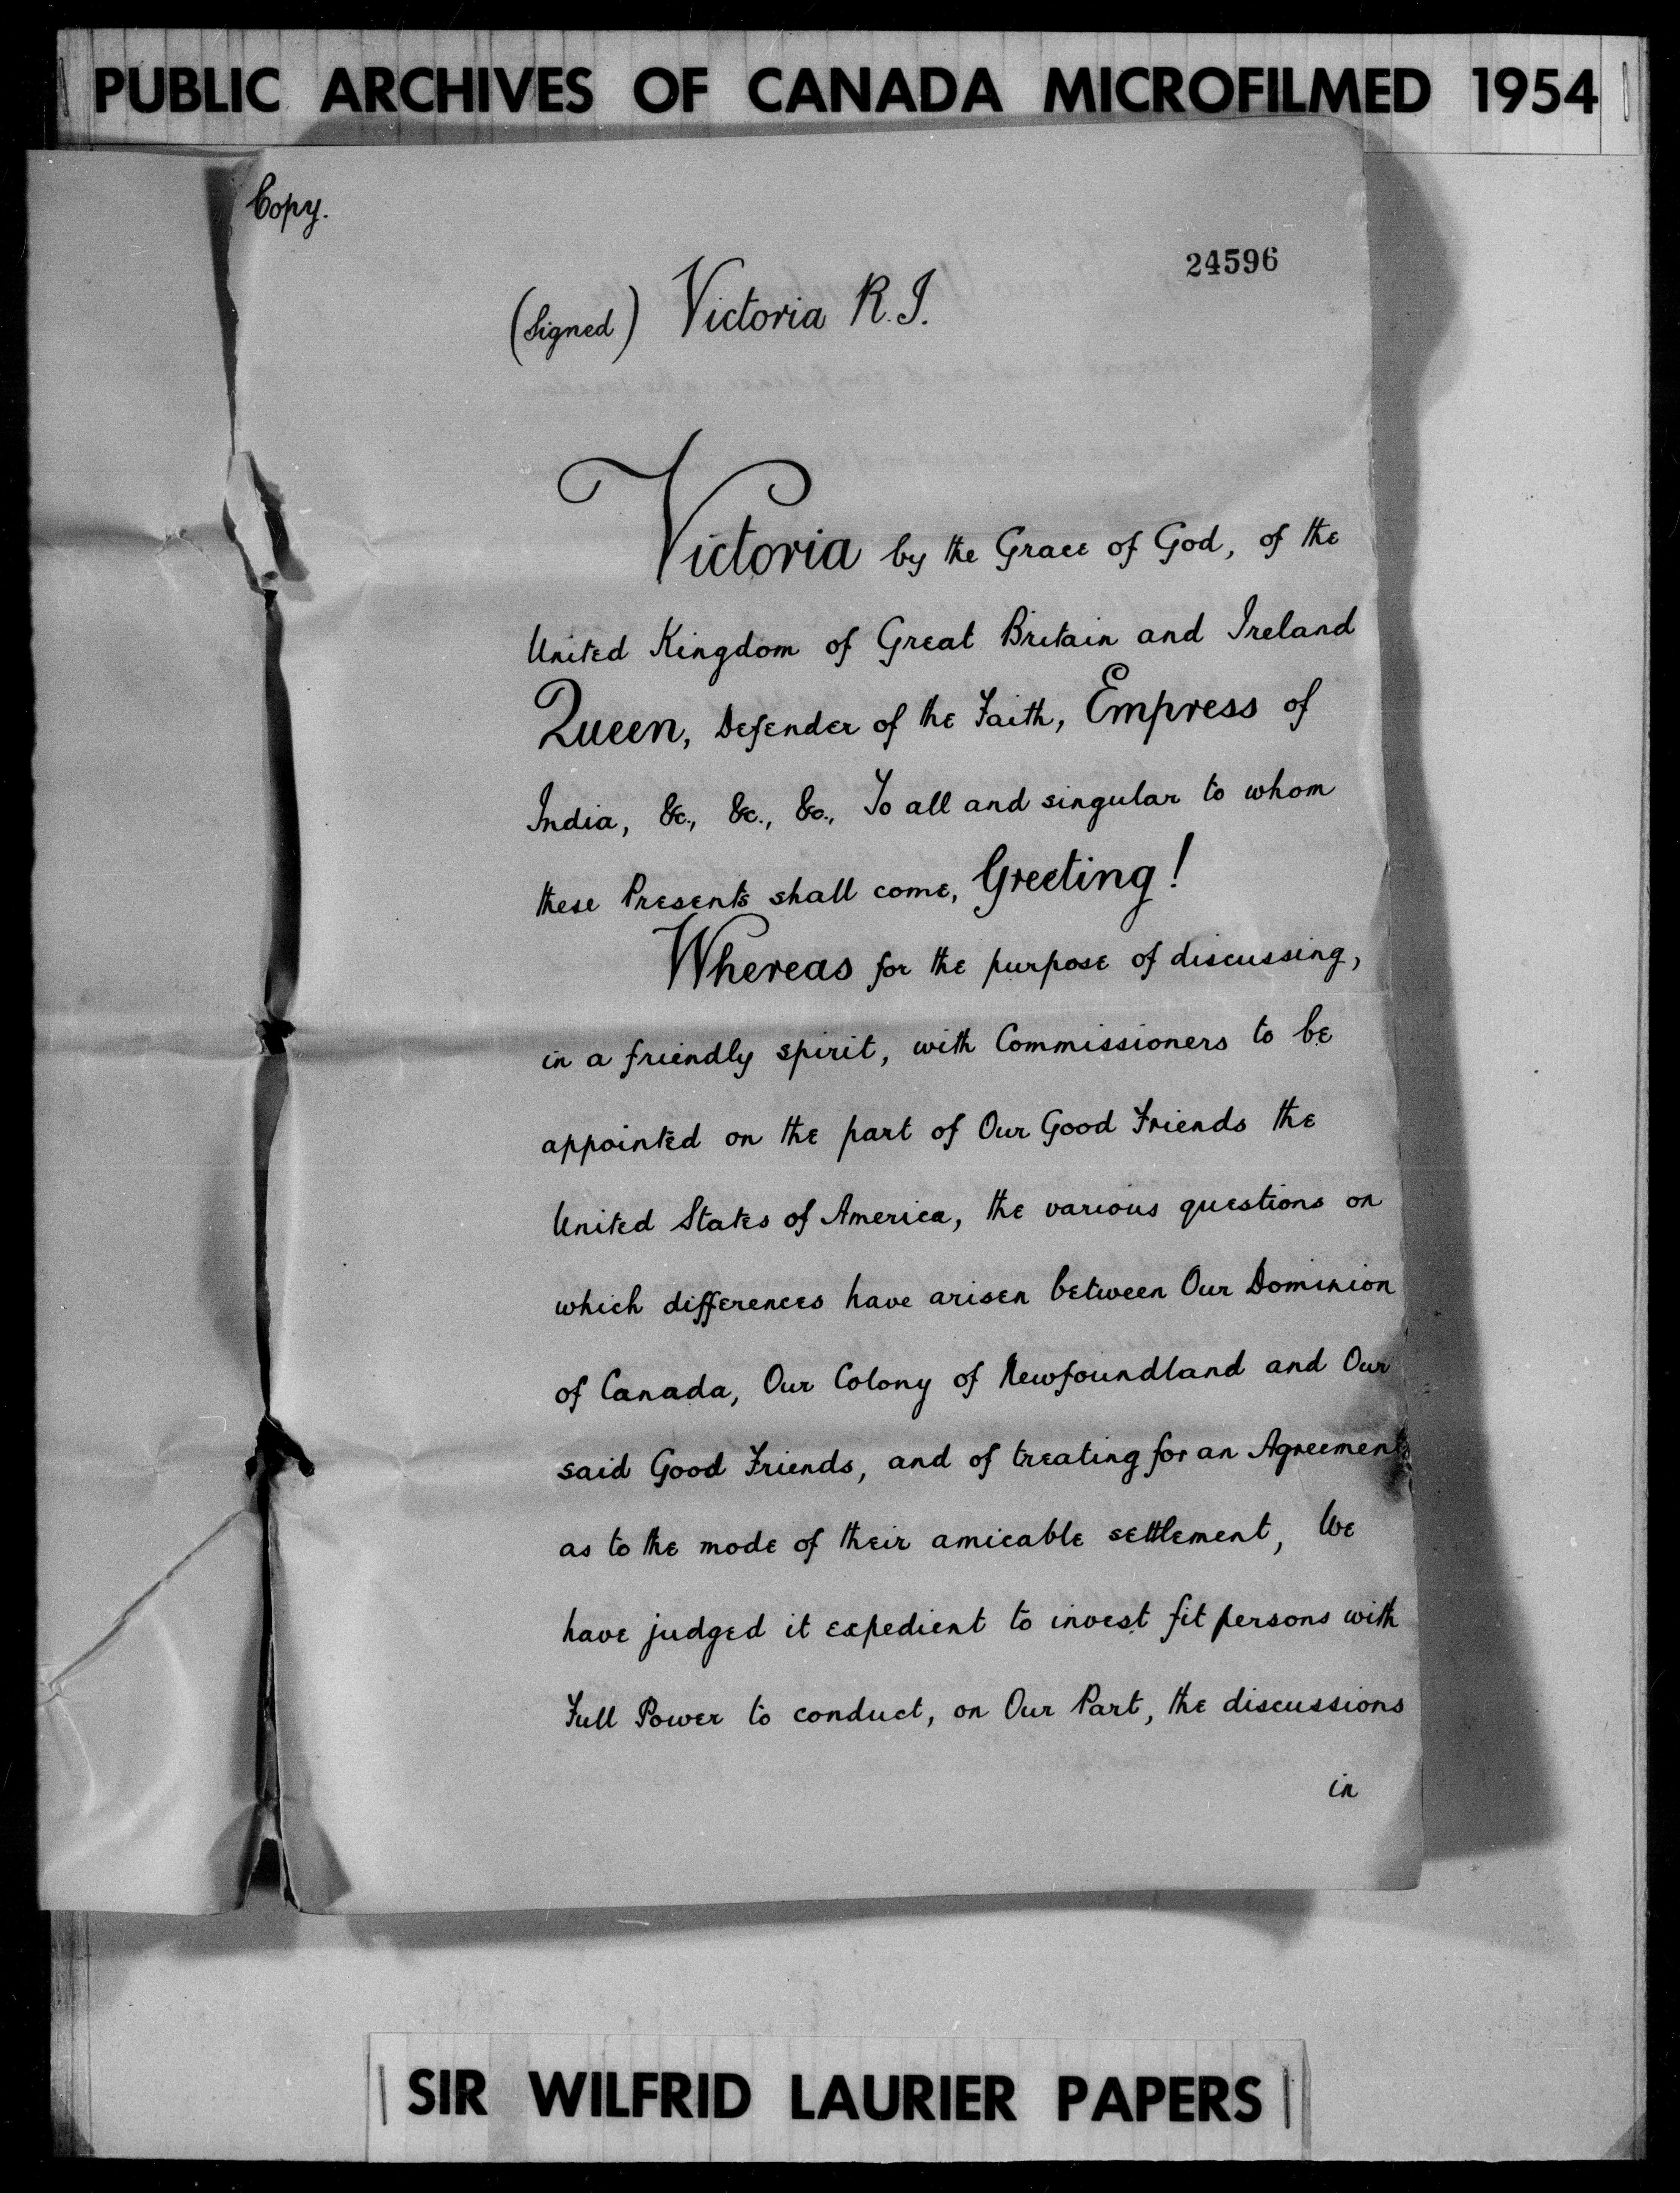 PUBLIC ARCHIVES OF CANADA MICROFILMED 1954
Copy.
24596
(Signed) Victoria R.I.
Victoria by the Grace of God, of the
United Kingdom of Great Britain and Ireland
Queen, Defender of the Faith, Empress of
India, &c., &c., &c., To all and singular to whom
these Presents shall come, Greeting!
Whereas for the purpose of discussing,
in a friendly spirit, with Commissioners to be
appointed on the part of Our Good Friends the
United States of America, the various questions on
which differences have arisen between Our Dominion
of Canada, Our Colony of Newfoundland and Our
said Good Friends, and of treating for an Agreement
as to the mode of their amicable settlement, We
have judged it expedient to invest fit persons with
Full Power to conduct, on Our Part, the discussions
in
SIR WILFRID LAURIER PAPERS